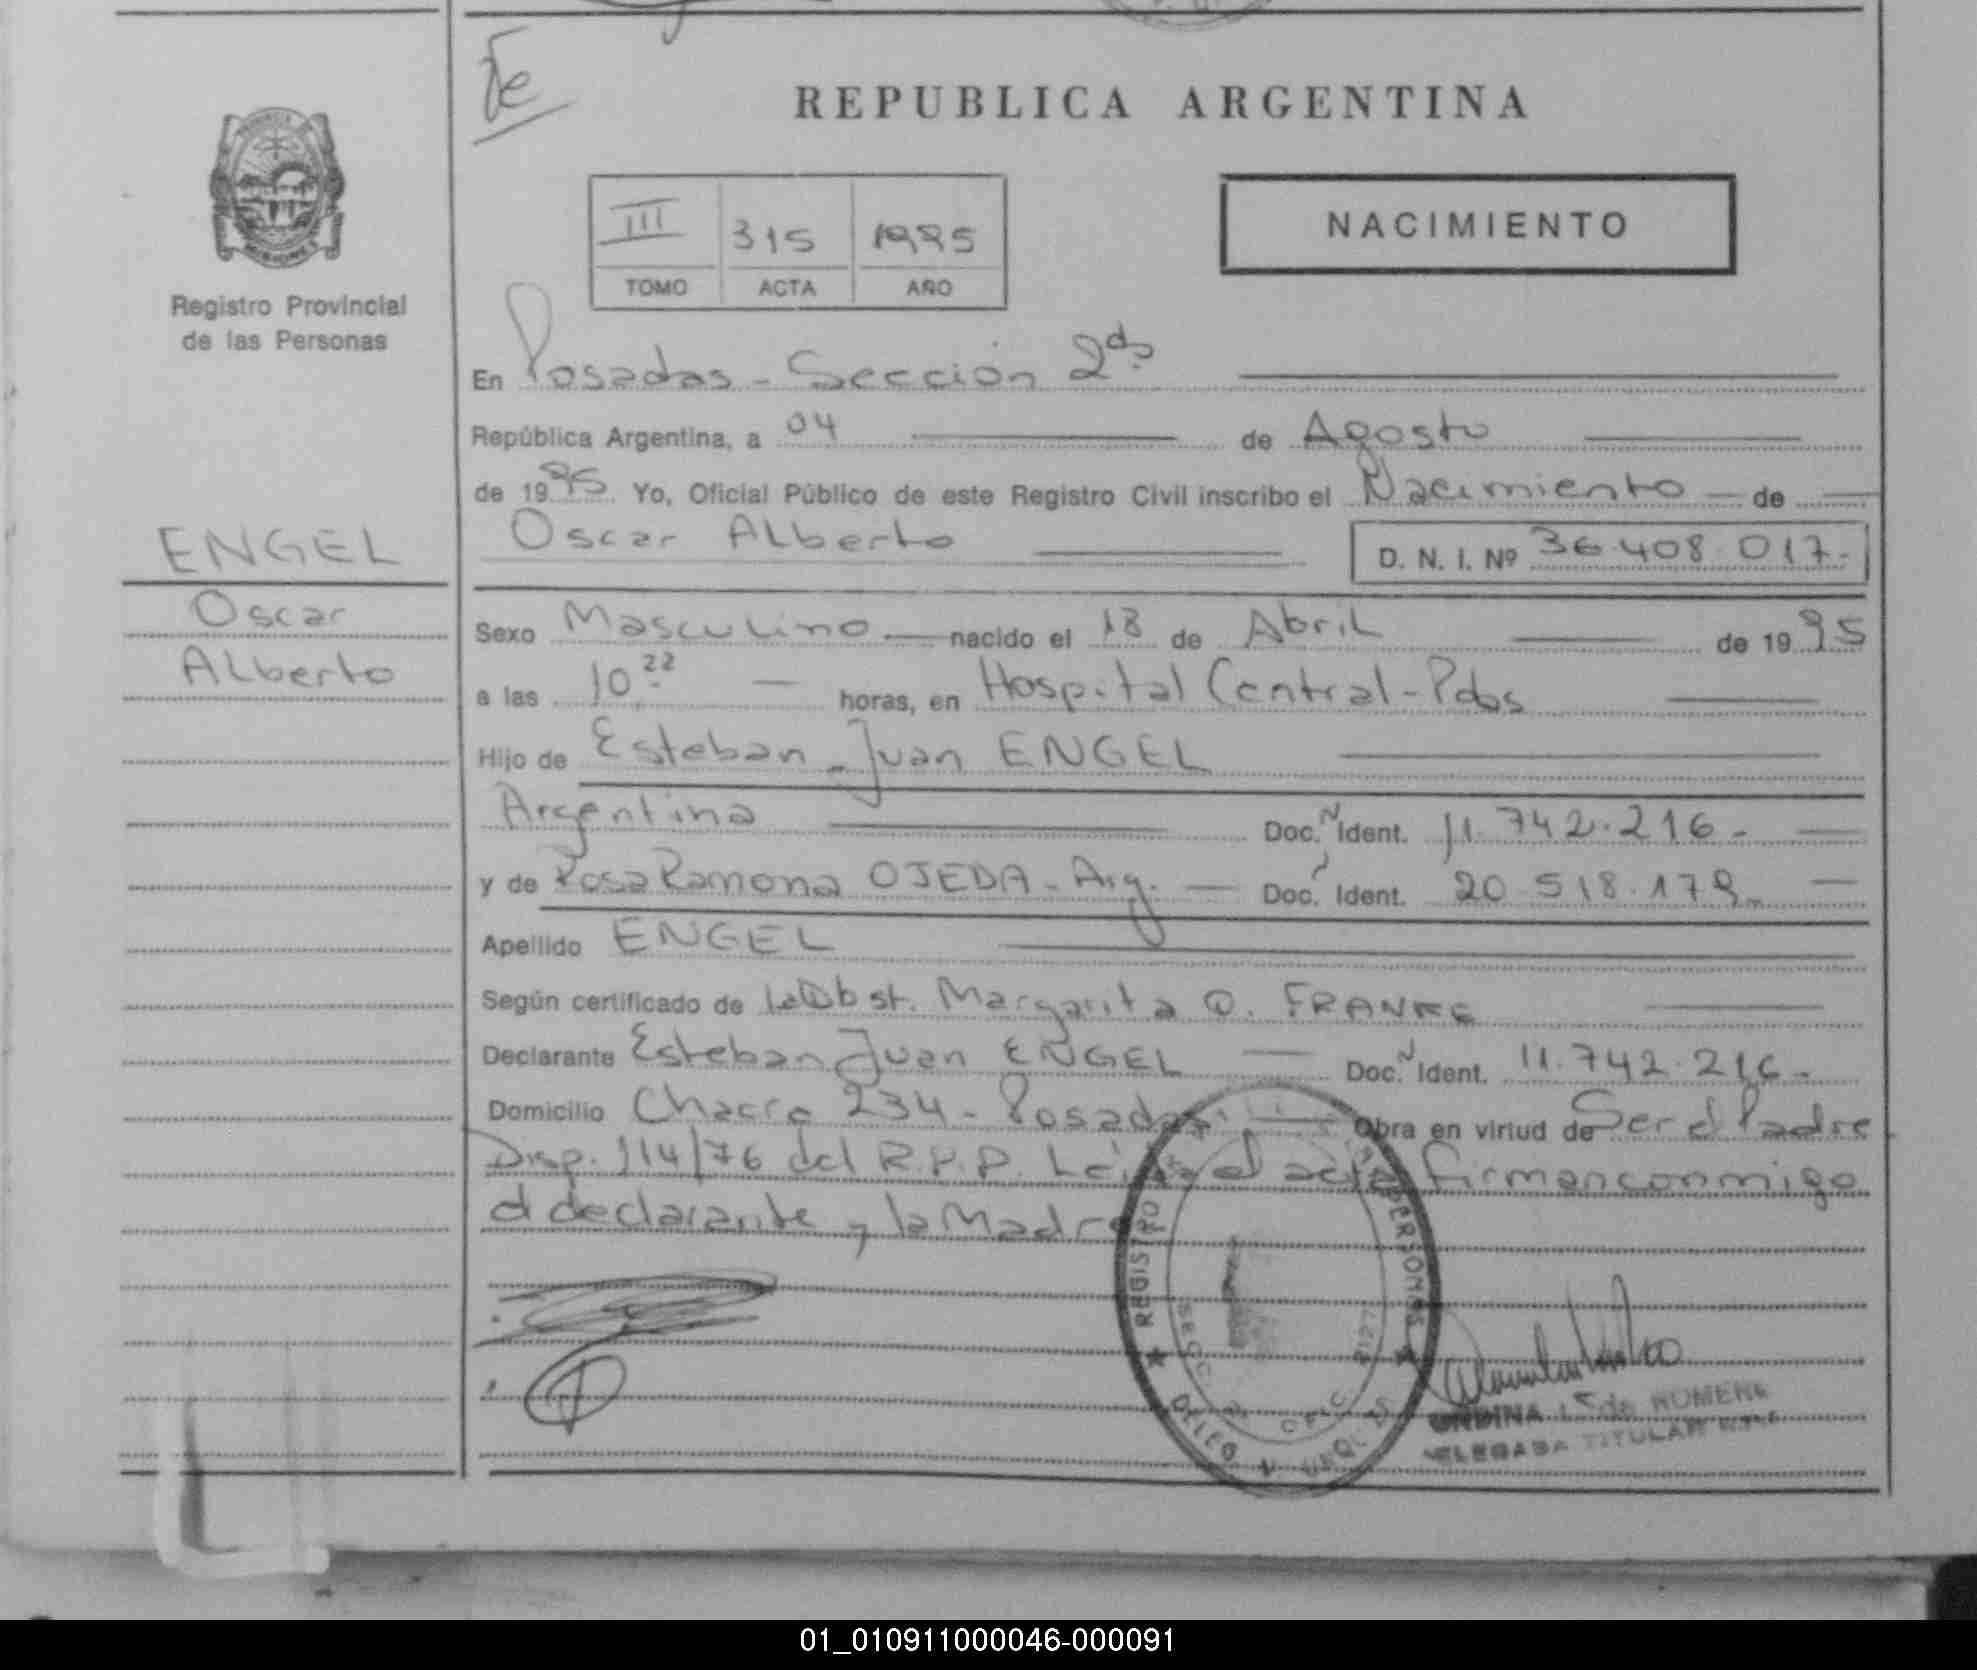 REPUBLICA ARGENTINA
NACIMIENTO
III 315 1995
TOMO ACTA AÑO
Registro Provincial
de las Personas
En Posadas - Sección 2da
República Argentina, a 04 de Agosto
de 1995 Yo, Oficial Público de este Registro Civil inscribo el Nacimiento de
Oscar Alberto D. N. I. Nº 36.408.017.-
ENGEL
Oscar
Alberto
Sexo Masculino nacido el 18 de Abril de 1995
a las 10 22 horas, en Hospital Central - Pdas
Hijo de Esteban Juan ENGEL
Argentina Doc. Ident. 11.742.216.-
y de Rosa Ramona OJEDA - Arg. Doc. Ident. 20.518.179.-
Apellido ENGEL
Según certificado de la Obst. Margarita Q. FRANKE
Declarante Esteban Juan ENGEL Doc. Ident. 11.742.216.-
Domicilio Chacra 234 - Posadas Obra en virtud de Ser el Padre
Disp. 114/76 del R.P.P. Leída el acta firman conmigo
el declarante y la Madre
REGISTRO PERSONAS
DELEG
ONDINA de ROMERO
DELEGADA TITULAR
01_010911000046-000091